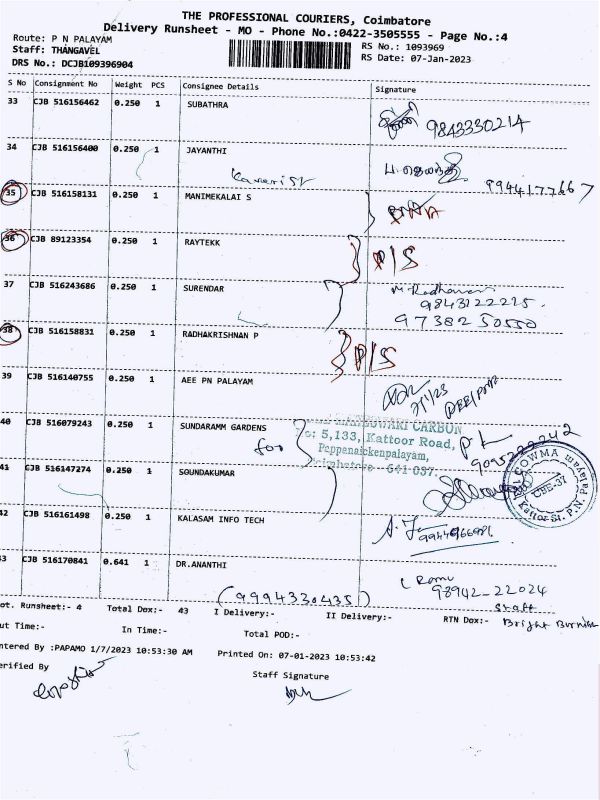 THE PROFESSIONAL COURIERS, Coimbatore
Delivery Runsheet - MO - Phone No.:0422-3505555 - Page No.:4
Route: P N PALAYAM
RS No.: 1093969
Staff: THANGAVEL
RS Date: 07-Jan-2023
DRS No.: DCJB109396904
S No Consignment No Weight PCS Consignee Details Signature
33 CJB 516156462 0.250 1 SUBATHRA
9843330214
34 CJB 516156400 0.250 1 JAYANTHI
9944177667
35 CJB 516158131 0.250 1 MANIMEKALAI S
36 CJB 89123354 0.250 1 RAYTEKK
D/S
37 CJB 516243686 0.250 1 SURENDAR
9843122225.
9738250550
38 CJB 516158831 0.250 1 RADHAKRISHNAN P
D/S
39 CJB 516140755 0.250 1 AEE PN PALAYAM
40 CJB 516079243 0.250 1 SUNDARAMM GARDENS
CARBON
No: 5,133, Kattoor Road,
Peppanaickenpalayam,
Coimbatore - 641 037.
41 CJB 516147274 0.250 1 SOUNDAKUMAR
GOWMA
CBE-37
Kattor St. P.N. Palayam
42 CJB 516161498 0.250 1 KALASAM INFO TECH
43 CJB 516170841 0.641 1 DR.ANANTHI
(9994330435)
L Ramu
98942-22024
Staff
ot. Runsheet:- 4 Total Dox:- 43 I Delivery:- II Delivery:- RTN Dox:- Bright
ut Time:- In Time:- Total POD:-
ntered By :PAPAMO 1/7/2023 10:53:30 AM Printed On: 07-01-2023 10:53:42
erified By
Staff Signature